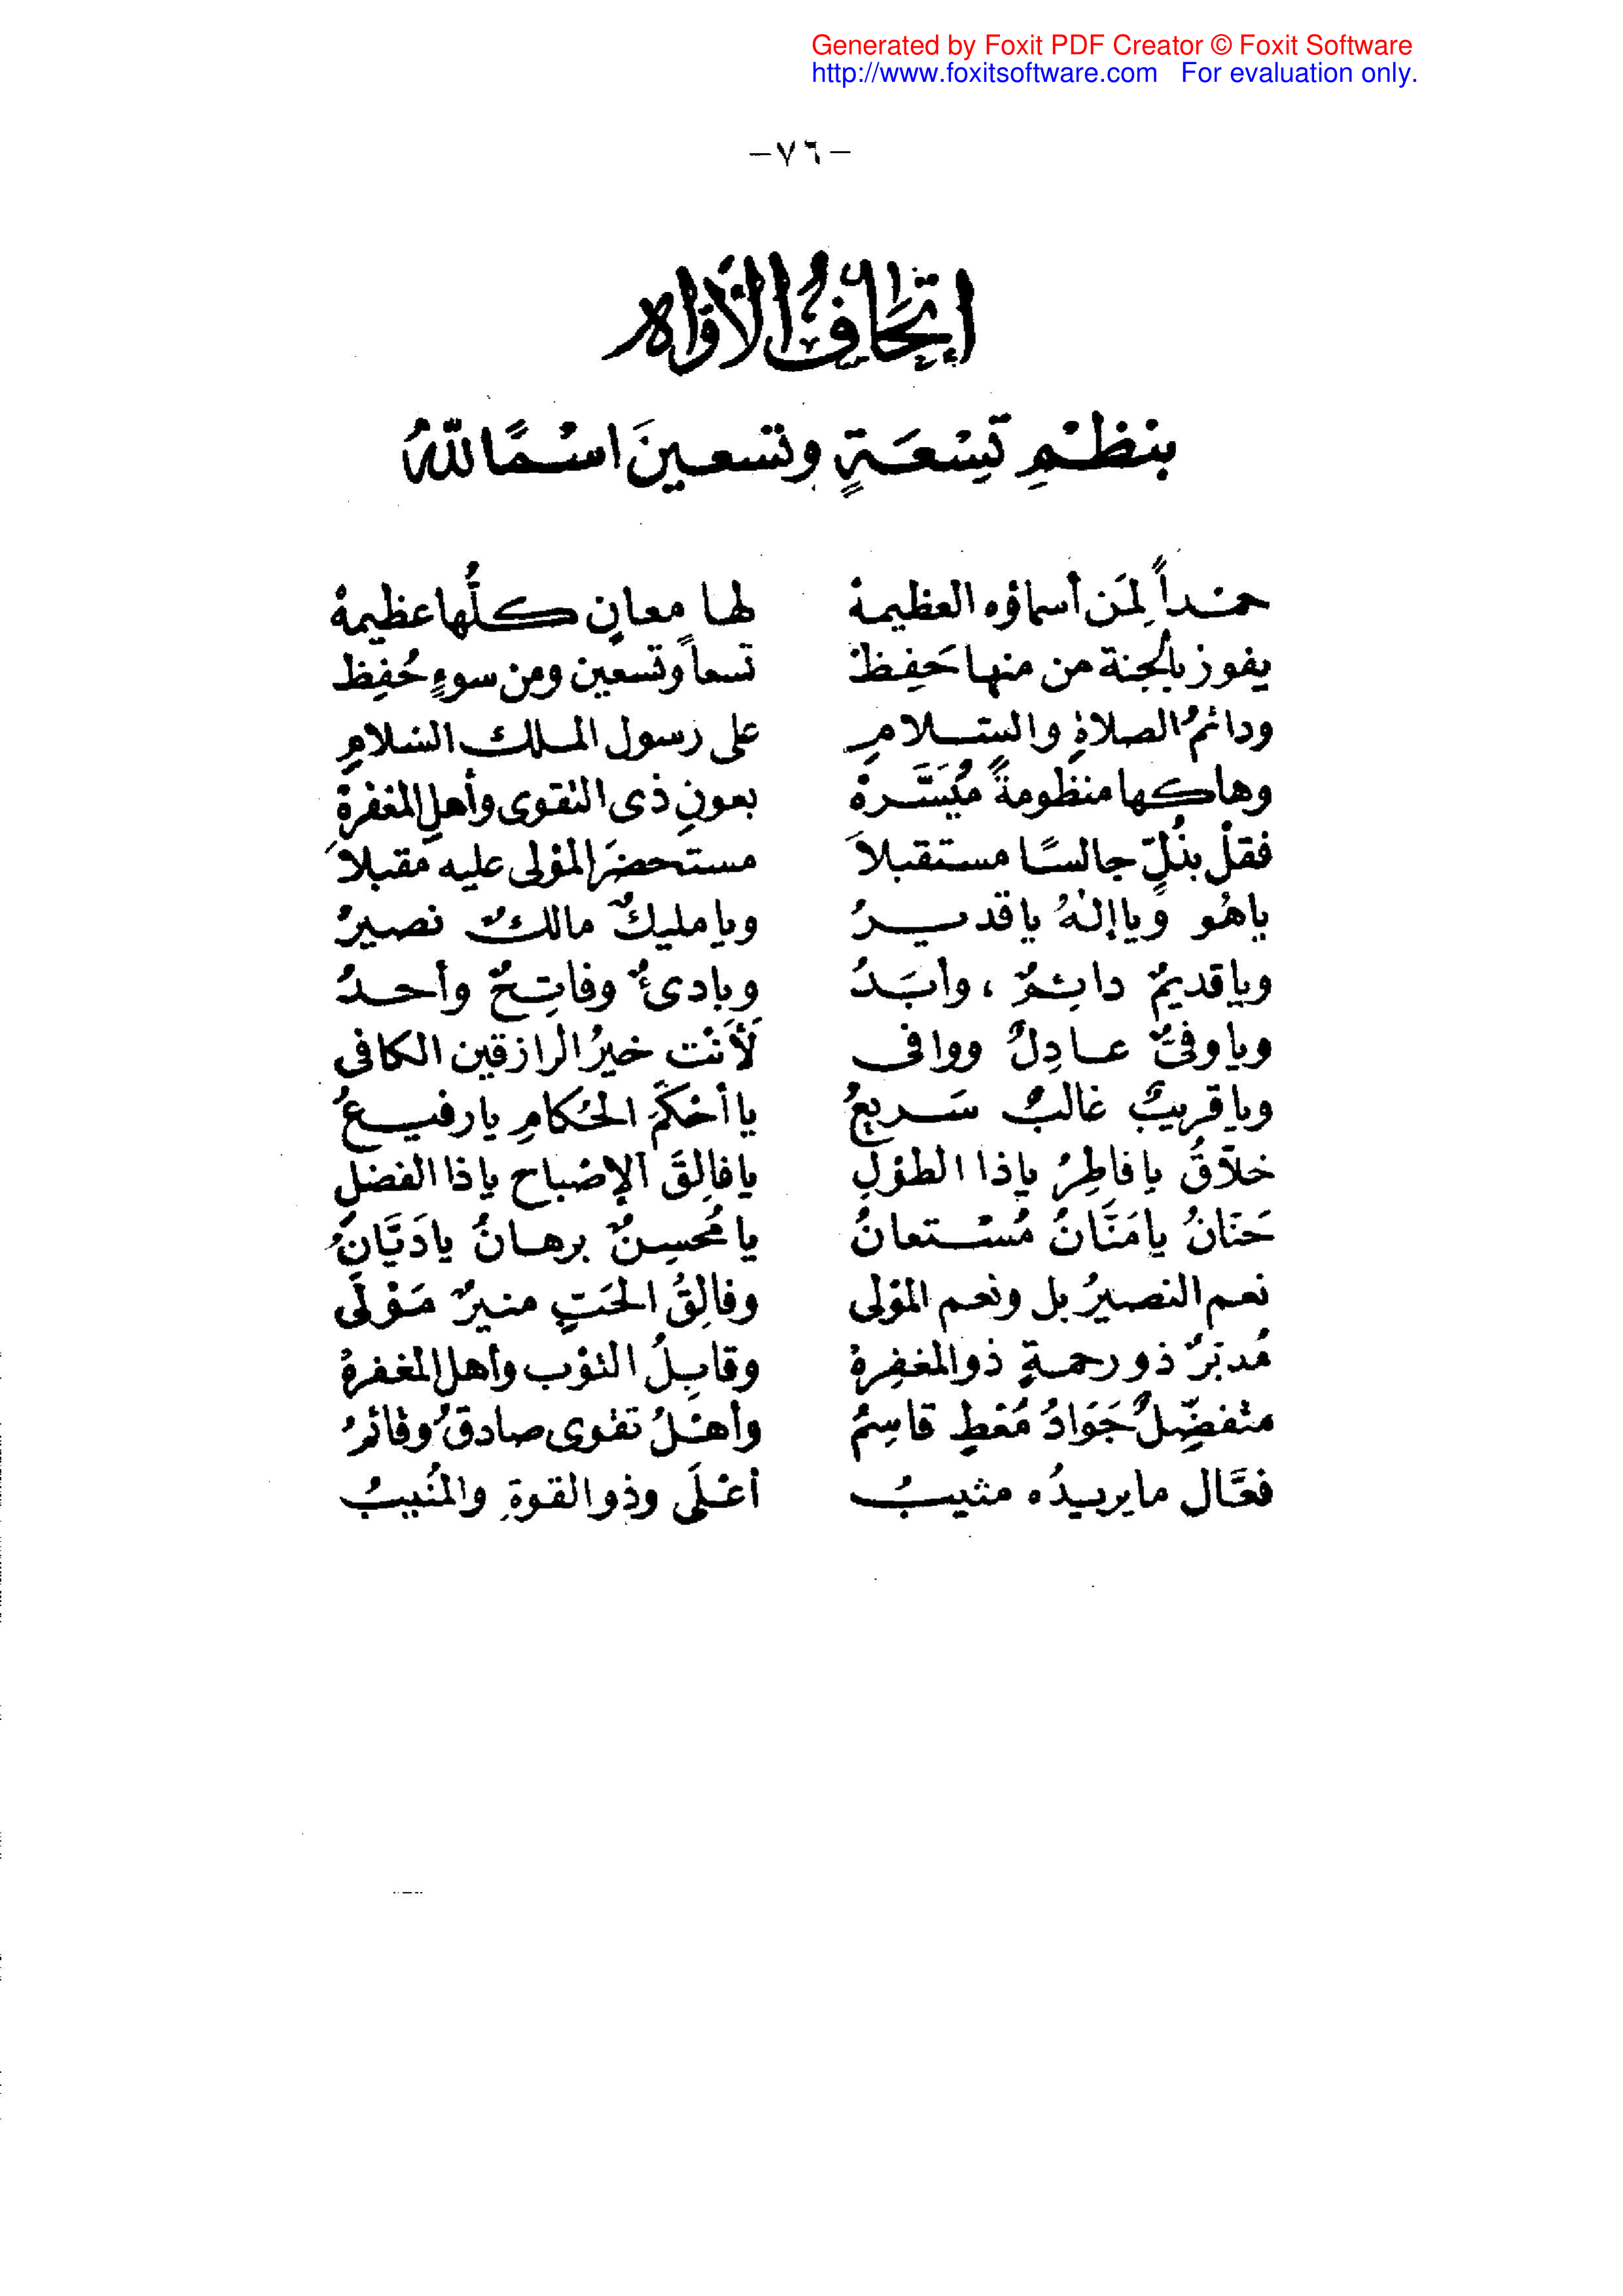 Generated by Foxit PDF Creator © Foxit Software
http://www.foxitsoftware.com For evaluation only.
-٧٦-
إتحافُ الأوّاه
بنظْمِ تِسْعَةٍ وتسعينَ اسْمًا للهُ
حمْداً لِمَن أسماؤه العظيمة لها معانٍ كلُّها عظيمهْ
يفوز بالجنة من منها حَفِظْ تسعاً وتسعين ومن سوءٍ حُفِظ
ودائمُ الصلاةِ والسلامِ على رسول الملك السلامِ
وهاكها منظومةً مُيَسَّرهْ بعونِ ذى التقوى وأهلِ المغفرةِ
فقلْ بذُلٍّ جالسًا مستقبلاَ مستحضرَ المؤلى عليه مقبلاَ
ياهُو وياإلهُ ياقديرُ ويامليكٌ مالكٌ نصيرُ
وياقديمٌ دائمٌ ، وأبَدُ وبادئٌ وفاتِحٌ وأحدُ
وياوفىٌّ عادِلٌ ووافى لَأَنْت خيرُ الرازقين الكافى
وياقريبٌ غالبٌ سَريعُ ياأحْكَمَ الحُكامِ يارفيعُ
خلاّقُ يافاطِرُ ياذا الطوْلِ يافالِقَ الإصْباح ياذا الفضلِ
حَنَّانُ يامَنَّانُ مُسْتعانُ يامُحسِنٌ برهانُ يادَيَّانُ
نعم النصيرُ بل ونعم المؤلى وفالِقُ الحَبِّ منيرٌ مَوْلَى
مُدبّرٌ ذو رحمةٍ ذو المغفِرهْ وقابِلُ التوْب وأهل المغفرهْ
متفضِّلٌ جَوَادُ مُعْطٍ قاسِمُ وأهْلُ تقوى صادقٌ وقائمُ
فعَّال مايريدُه مثيبُ أعْلَى وذو القوةِ والمُنيبُ